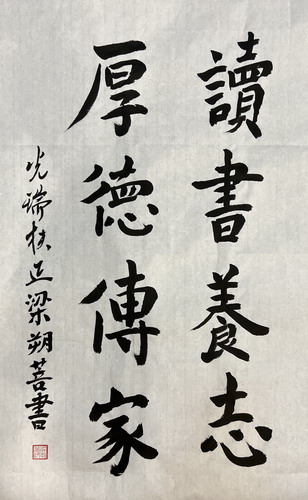 讀書養志
厚德傳家
光瑞扶正梁朔菩書